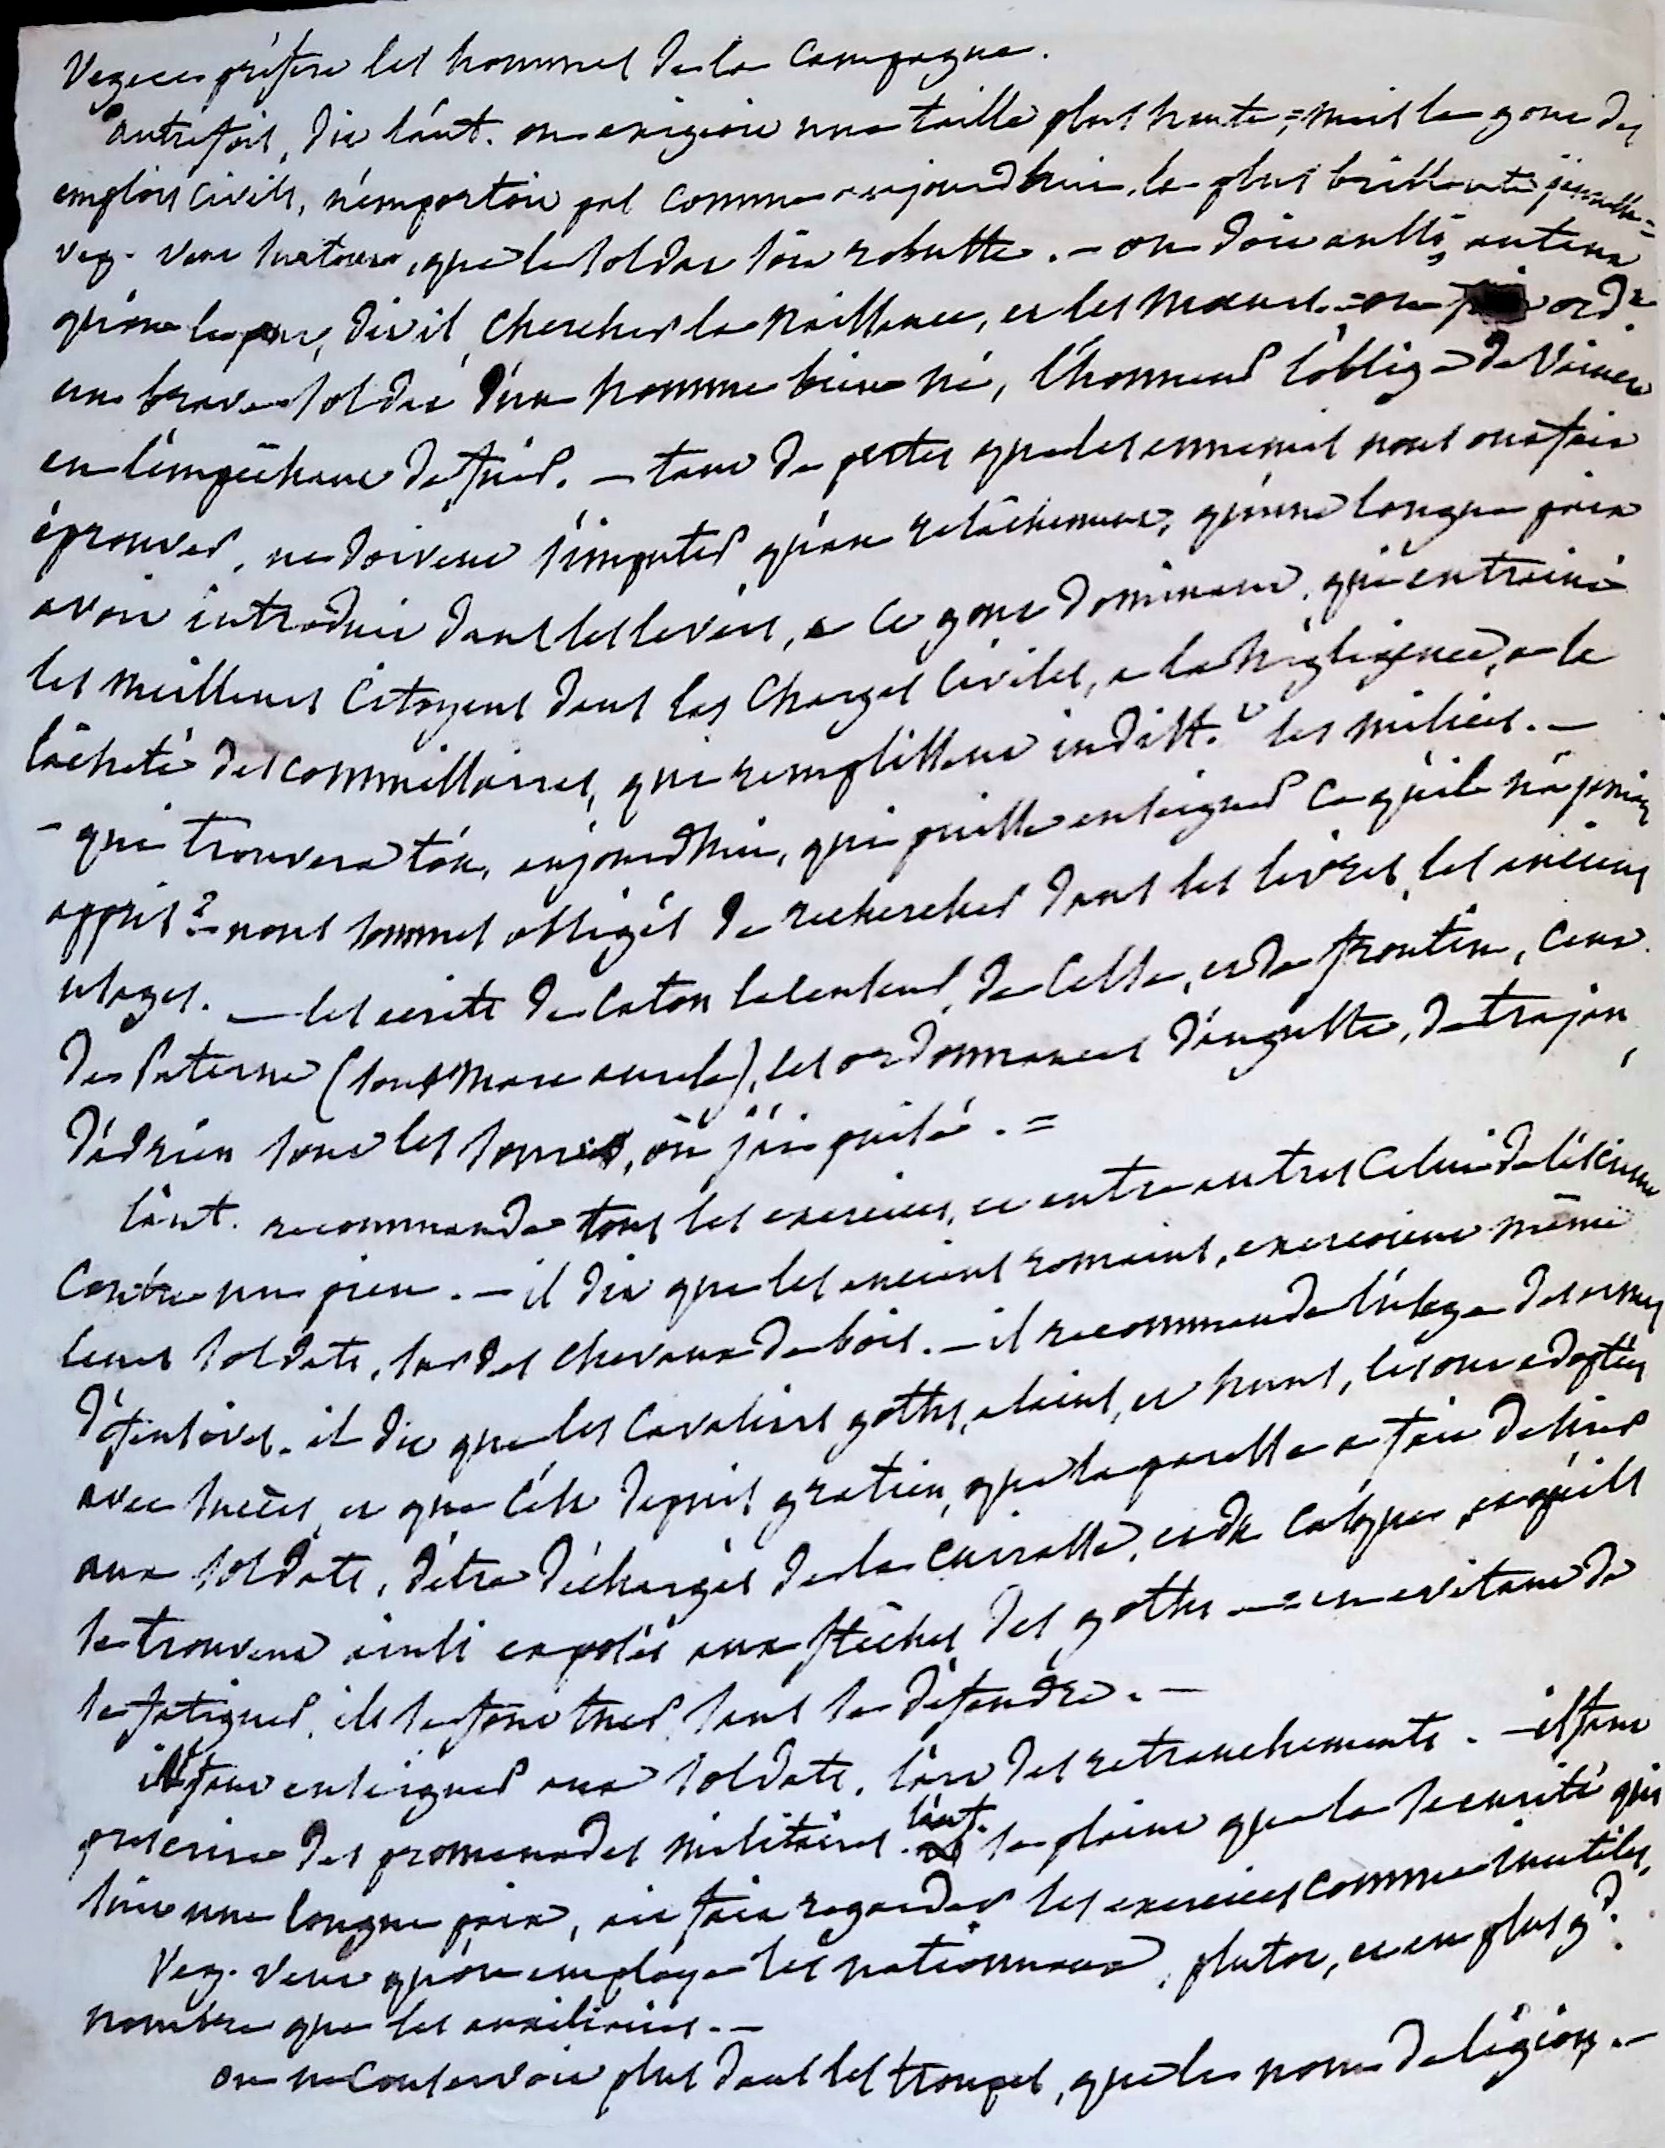 Vegece préfere les hommes de la campagne.
autrefois, dit l'aut. on exigeoit une taille plus haute, = mais le gout des
emplois civils, n'emportoit pas comme aujourd'hui, la plus brillante jeunesse =
veg. veut surtout, que le soldat soit robuste. — on doit aussi, autant
qu'on le peut, dit il, chercher la naissance, et les moeurs. = on fait ord.re
un brave soldat d'un homme bien né, l'honneur l'oblige de vaincre
en l'empêchant de fuir. — tant de pertes que les ennemis nous ont fait
éprouver, ne doivent s'imputer qu'au relâchement, qu'une longue paix
avoit introduit dans les levées, a ce gout dominant, qui entraine
les meilleurs citoyens dans les charges civiles, a la négligence, a la
lâcheté des commissaires, qui remplissent indist.t les milices. —
- qui trouvera t'on, aujourd'hui, qui puisse enseigner ce qu'il n'a jamais
appris ? — nous sommes obligés de rechercher dans les livres, les anciens
usages. — les ecrits de Caton le censeur, de Celse, et de frontin, ceux
de Paterne (sous Marc aurele), les ordonnances d'auguste, de trajan,
d'adrien sont les sources, où j'ai puisé. =
l'aut. recommande tous les exercices, et entre autres celui de l'escrime
contre un pieu. — il dit que les anciens romains, exercoient même
leurs soldats, sur des chevaux de bois. — il recommande l'usage des armes
défensives. il dit que les cavaliers goths, alains, et huns, les ont adoptées
avec succès, et que c'est depuis gratien, que la paresse a fait desirer
aux soldats, d'être déchargés de la cuirasse, et du casque, et qu'ils
se trouvent ainsi exposés aux flèches des goths — = en evitant de
se fatiguer, ils se font tuer sans se défendre. —
il faut enseigner aux soldats, l'art des retranchements. — il faut
prescrire des promenades militaires. l'aut. se plaint que la securité qui
suit une longue paix, ait fait regarder les exercices comme inutiles,
Veg. veut qu'on employe les nationnaux, plutot, et en plus g.d
nombre que les auxiliaires. —
on ne conservoit plus dans les troupes, que le nom de légion. —